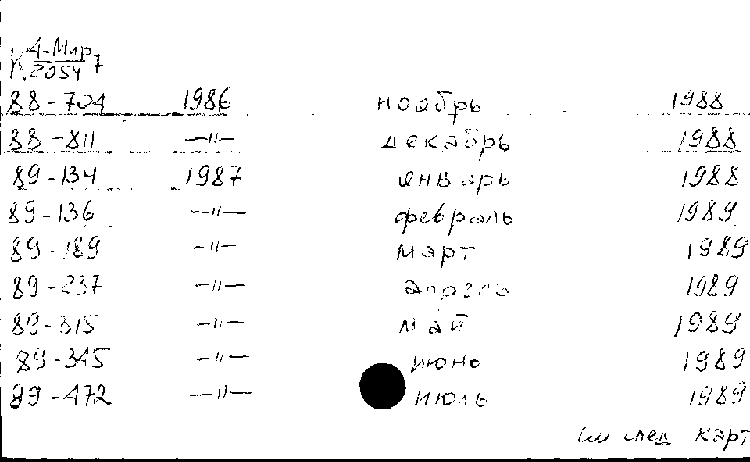 К 4-Мир 7
2054
88-704 1986 ноябрь 1988
88-811 —〃— декабрь 1988
89-134 1987 январь 1988
89-136 —〃— февраль 1989
89-189 —〃— март 1989
89-237 —〃— апрель 1989
89-315 —〃— май 1989
89-345 —〃— июнь 1989
89-472 —〃— июль 1989
см след карт